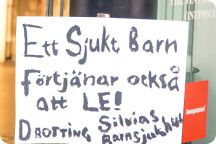 Ett Sjukt Barn
Förtjänar också
att LE!
Drotting Silvias
Barnsjukhus